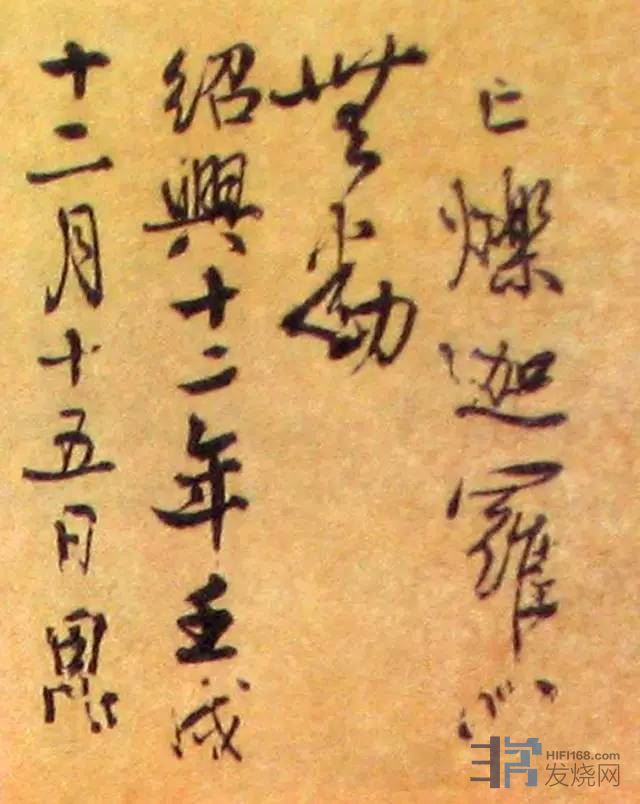 亡爍迦羅心
無動
紹興十二年壬戌
十二月十五日
HIFI168.com
发烧网